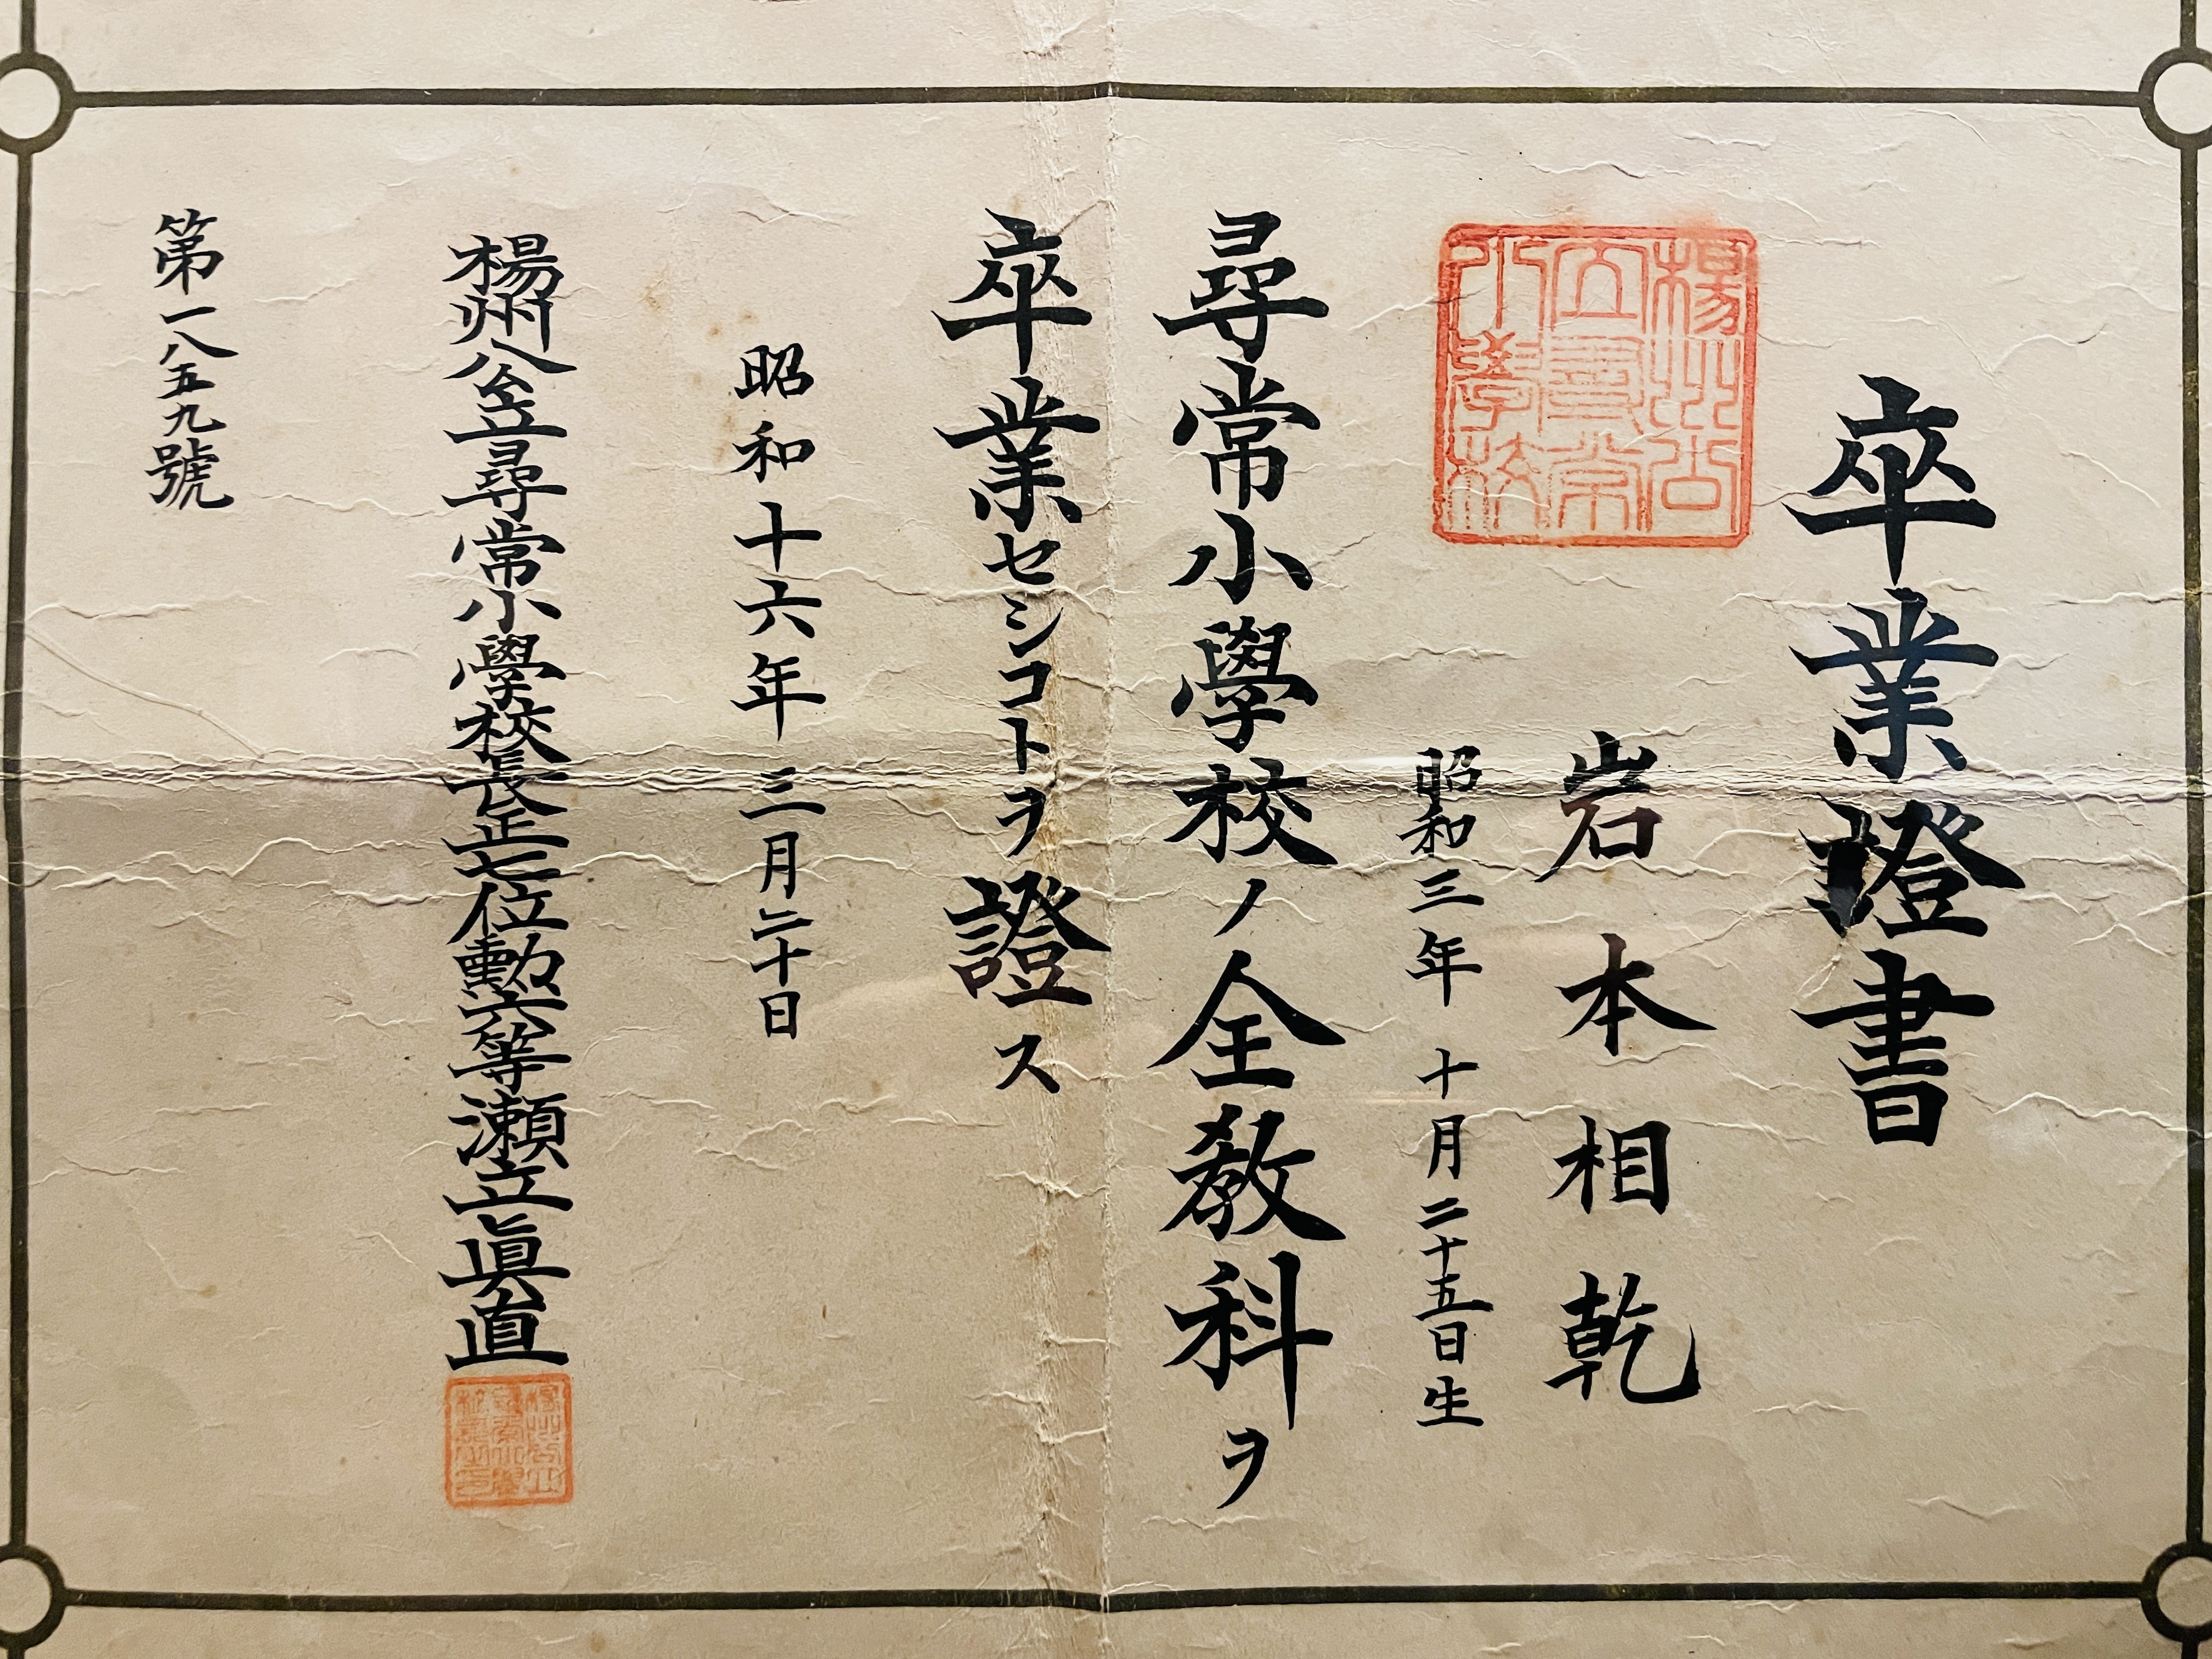 卒業證書
楊州公
立尋常
小學校
岩本相乾
昭和三年十月二十五日生
尋常小學校ノ全敎科ヲ
卒業セシコトヲ證ス
昭和十六年三月二十日
楊州公立尋常小學校長正七位勳六等瀨立眞直
第一八五九號